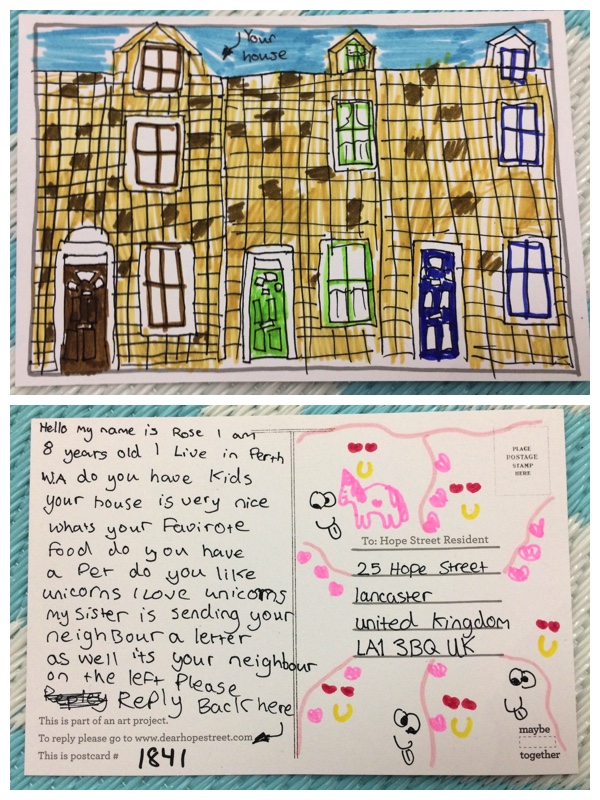 Your
house
Hello my name is Rose I am
8 years old I Live in Perth
WA do you have Kids
your house is very nice
whats your Favirote
Food do you have
a Pet do you like
unicorns I Love unicorns
my sister is sending your
neighbour a letter
as well its your neighbour
on the left Please
Reply Back here
This is part of an art project.
To reply please go to www.dearhopestreet.com
This is postcard # 1841
PLACE
POSTAGE
STAMP
HERE
To: Hope Street Resident
25 Hope Street
lancaster
united kingdom
LA1 3BQ UK
maybe
together